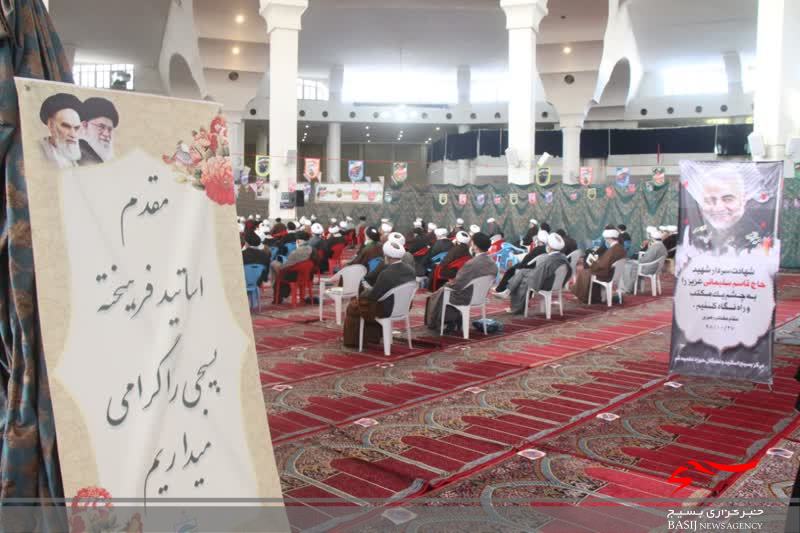 مقدم
اساتید فرهیخته
بسیجی را گرامی
میداریم
شهادت سردار شهید
حاج قاسم سلیمانی عزیز را
به چشم یک مکتب
و راه نگاه کنیم.
مقام معظم رهبری
خبرگزاری بسیج
BASIJ NEWS AGENCY